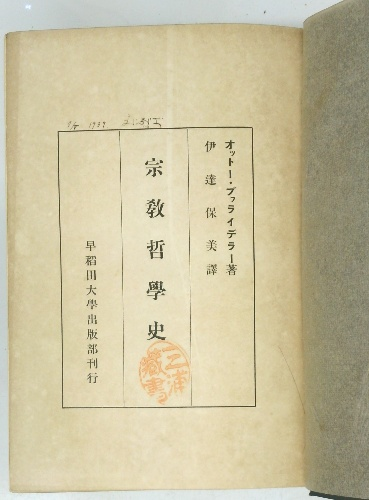 オットー・プァライデラー著
伊達保美譯
宗教哲學史
早稲田大學出版部刊行
三浦
藏書
1937